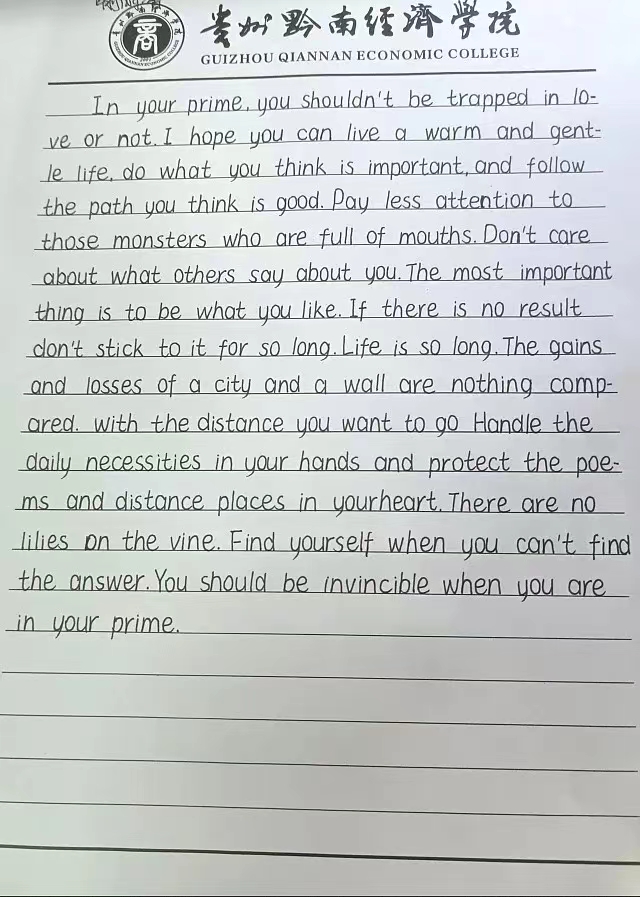 贵州黔南经济学院
GUIZHOU QIANNAN ECONOMIC COLLEGE
In your prime, you shouldn't be trapped in lo-
ve or not. I hope you can live a warm and gent-
le life, do what you think is important, and follow
the path you think is good. Pay less attention to
those monsters who are full of mouths. Don't care
about what others say about you. The most important
thing is to be what you like. If there is no result
don't stick to it for so long. Life is so long. The gains
and losses of a city and a wall are nothing comp-
ared. with the distance you want to go Handle the
daily necessities in your hands and protect the poe-
ms and distance places in yourheart. There are no
lilies on the vine. Find yourself when you can't find
the answer. You should be invincible when you are
in your prime.